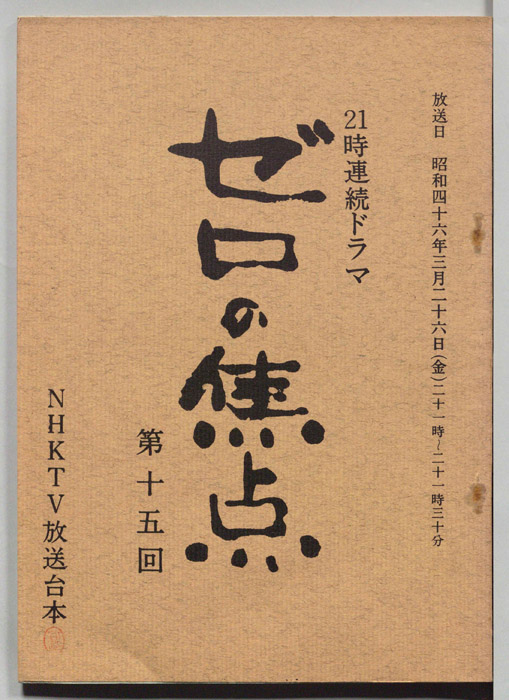 放送日 昭和四十六年三月二十六日(金)二十一時~二十一時三十分
21時連続ドラマ
ゼロの焦点
第十五回
NHKTV放送台本